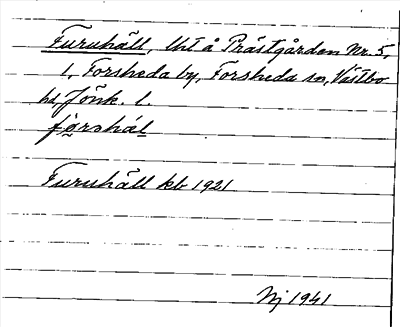 Furuhäll, lht å Prästgården Nr. 5,
1, Forsheda by, Forsheda sn, Västbo
hd, Jönk. l.
Furuhäll kb 1921
Nj 1941